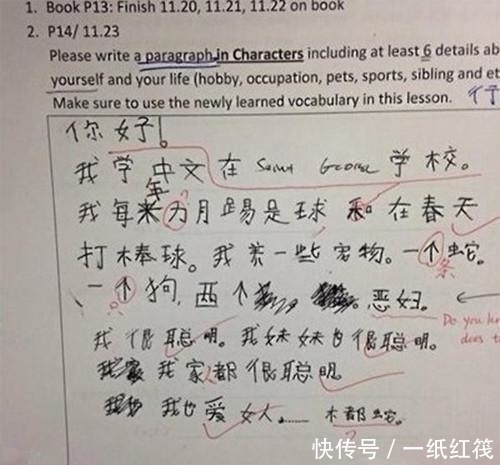 1. Book P13: Finish 11.20, 11.21, 11.22 on book
2. P14/ 11.23
Please write a paragraph in Characters including at least 6 details ab
yourself and your life (hobby, occupation, pets, sports, sibling and et
Make sure to use the newly learned vocabulary in this lesson.
你好!
我学中文在 Saint George 学校。
年
我每 为月踢足球 和 在春天
打棒球。我养一些宠物。一个蛇。
条
一个狗, 西个 恶妇。
Do you
does t
我很聪明。我妹妹也很聪明。
我家都很聪明。
我也爱女人…… 木都蛇。
快传号/一纸红筏